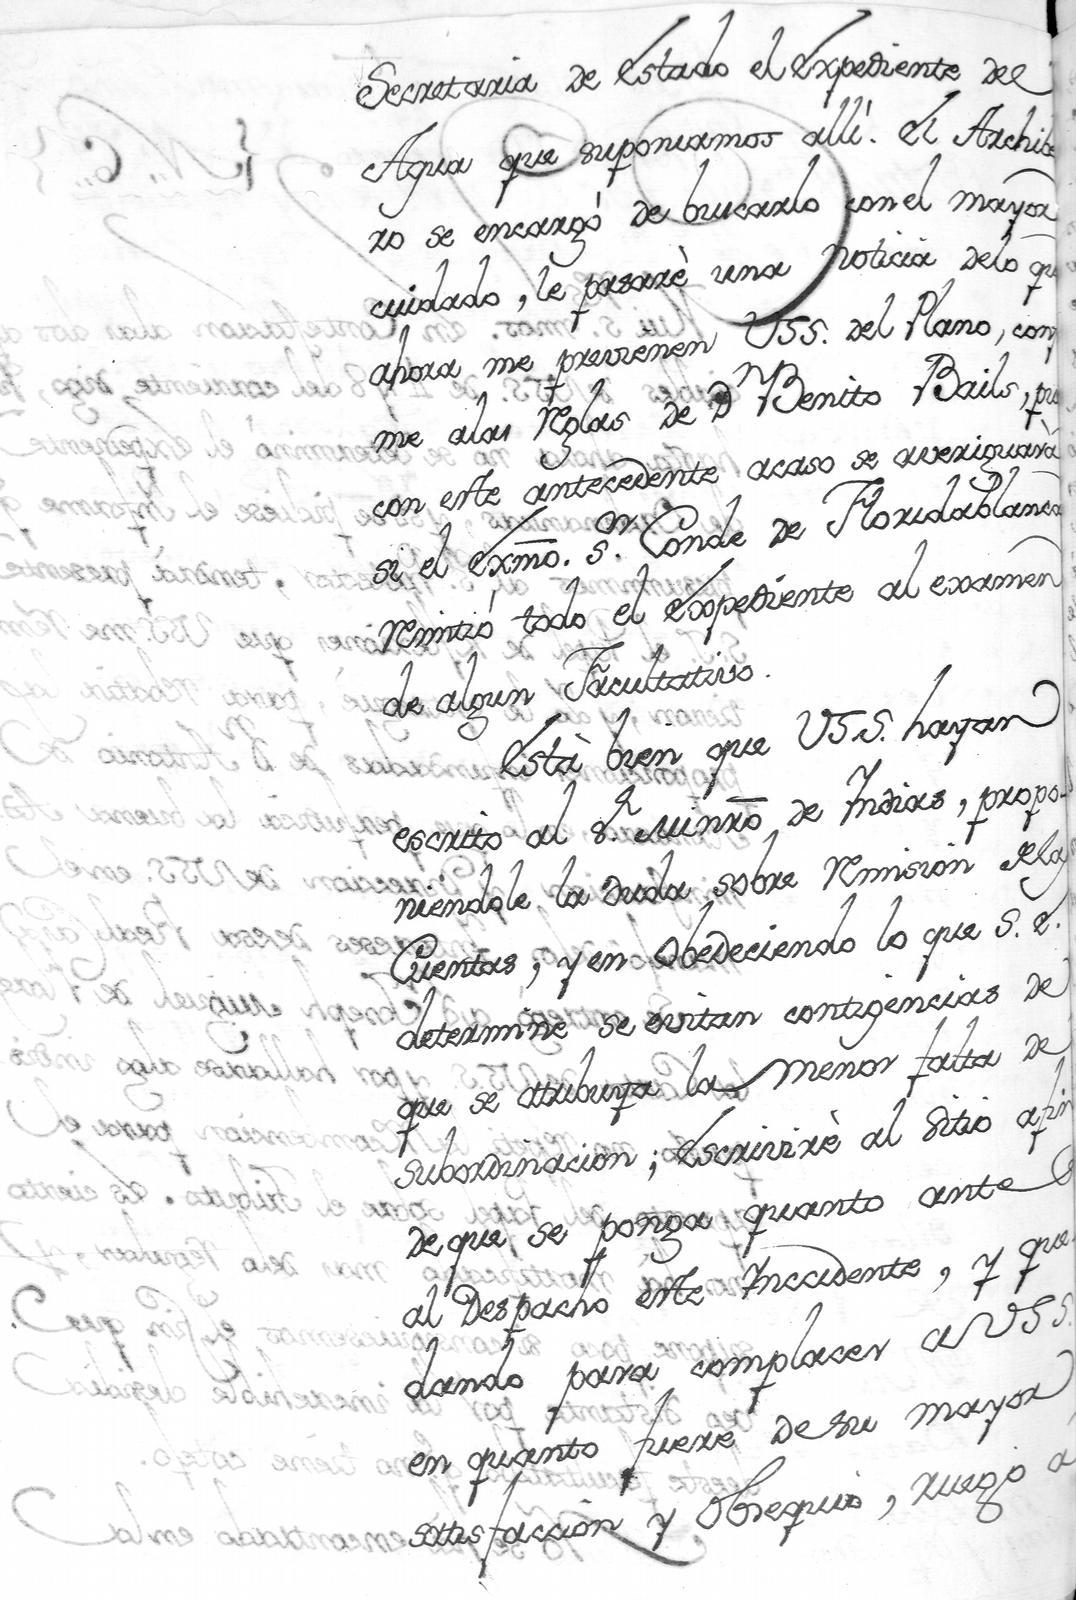 Secretaria de Estado el Expediente del
Agua que suponiamos allí. El Archibe
ro se encargó de bucarlo con el mayor
cuidado, le pasarè una noticia delo qu
ahora me previenen VSS. del Plano, con
me alas Reglas de Dn Benito Bails, pu
con este antecedente acaso se averiguarà
si el Exmo. Sor. Conde de Floridablanca
remitió todo el Expediente al examen
de algun Facultativo.
Està bien que VSS. hayan
escrito al Sr. Minro de Indias, propo-
niendole la duda sobre remision dela
Cuentas, y en obedeciendo lo que S. E.
determine se evitan contigencias de
que se atribuya la menor falta de
subordinacion; Escrivirè al sitio afin
de que se ponga quanto ante
al Despacho este Inccidente, y que
dando para complacer a VSS.
en quanto fuere de su mayor
satisfaccion y obsequio, ruego a